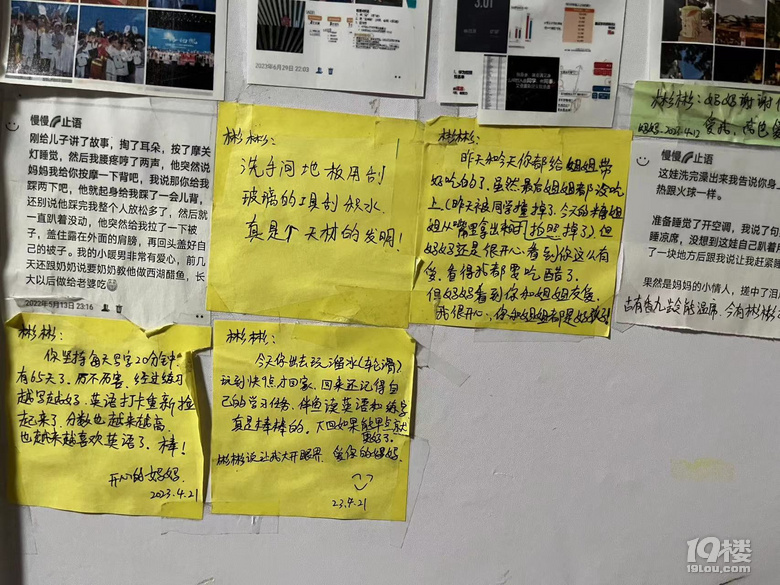 2023年6月29日 22:03
3.01
彬彬：妈妈谢谢
妈妈.2023.4.12
慢慢 止语
刚给儿子讲了故事，掏了耳朵，按了摩关
灯睡觉，然后我腰疼哼了两声，他突然说
妈妈我给你按摩一下背吧，我说那你给我
踩两下吧，他就起身给我踩了一会儿背，
还别说他踩完我整个人放松多了，然后就
一直趴着没动，他突然给我拉了一下被
子，盖住露在外面的肩膀，再回头盖好自
己的被子。我的小暖男非常有爱心，前几
天还跟奶奶说要奶奶教他做西湖醋鱼，长
大以后做给老婆吃
2022年5月13日 23:16
彬彬：
洗手间地板用刮
玻璃的工具刮积水
真是个天材的发明！
彬彬：
昨天和今天你都给姐姐带
好吃的了.虽然最后姐姐都没吃
上(昨天被同学撞掉了.今天的棒姐
姐从嘴里拿出和打拍照掉了)但
妈妈还是很开心.看到你这么有
爱.看得我都要吃醋了.
但妈妈看到你和姐姐友爱
我很开心.你和姐姐都是好孩子！
慢慢 止语
这娃洗完澡出来我告诉身
热跟火球一样。
准备睡觉了开空调，我说了句
睡凉席，没想到这娃自己趴着
了一块地方后跟我说让我赶紧睡
果然是妈妈的小情人，搓中了泪
古有香九去令能温席.今有彬彬
彬彬：
你坚持每天写字20分钟
有65天了.厉不厉害.经过练习
越写越好.英语打卡重新捡
起来了.分数也越来越高.
也越来越喜欢英语了.棒！
开心的妈妈.
2023.4.21
彬彬：
今天你出去玩溜冰(轮滑)
玩到快9点才回家.回来还记得自
己的学习任务.伴鱼读英语和练字
真是棒棒的.下回如果能早点就
更好了.
彬彬说让我大开眼界.爱你的妈妈.
23.4.21
19楼
19lou.com